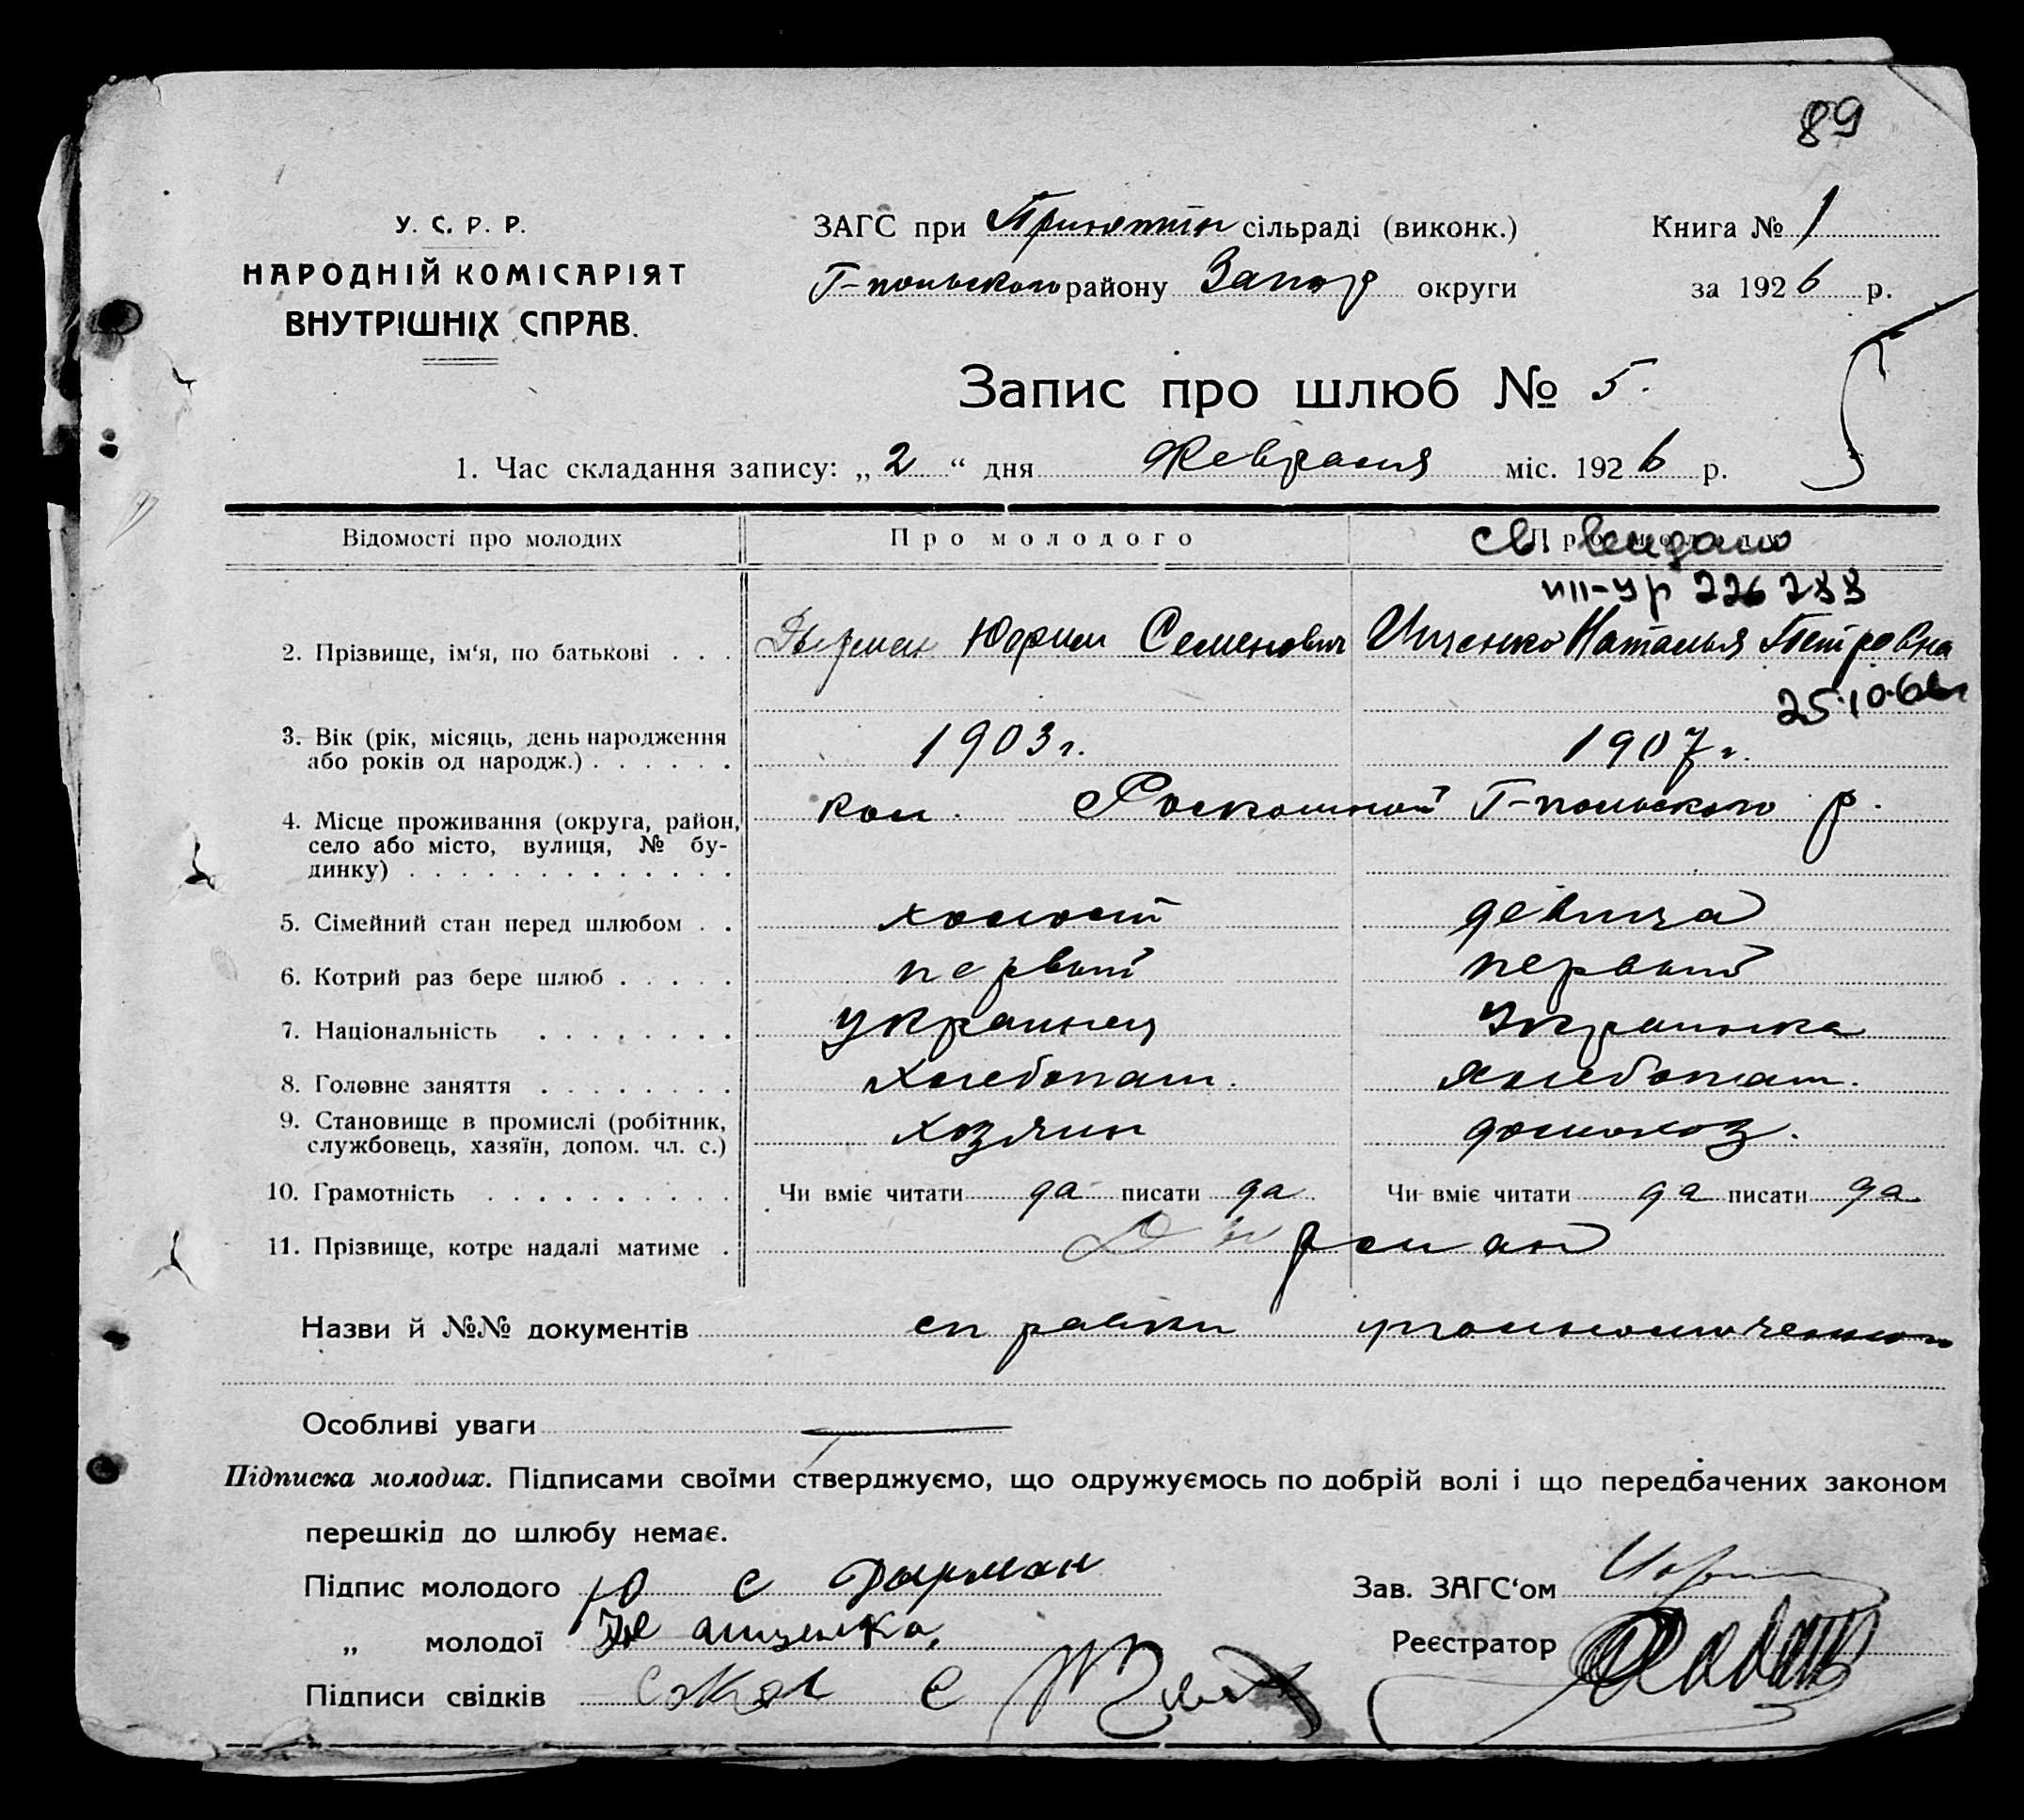 89
У. С. Р. Р.
НАРОДНІЙ КОМІСАРІЯТ
ВНУТРІШНІХ СПРАВ.
ЗАГС при сільраді (виконк.)
Г-польского району Запор округи
Книга № 1
за 1926 р.
Запис про шлюб № 5.
1. Час складання запису: „ 2 “ дня Февраля міс. 1926 р.
Відомості про молодих Про молодого
св. выдано
УР 226288
2. Прізвище, ім‘я, по батькові . . . Дырман Юхрим Семенович Ищенко Наталья Петровна
25.10.6
3. Вік (рік, місяць, день народження
або років од народж.) . . . . . . 1903 г. 1907 г.
4. Місце проживання (округа, район,
село або місто, вулиця, № бу-
динку) . . . . . . . . . . . . . кол. Роскошной Г-польского р.
5. Сімейний стан перед шлюбом . . холост девица
6. Котрий раз бере шлюб . . . . . первый первый
7. Національність . . . . . . . . украинец Украинка
8. Головне заняття . . . . . . . . хлебопаш. хлебопаш.
9. Становище в промислі (робітник,
службовець, хазяїн, допом. чл. с.) хозяин домохоз.
10. Грамотність . . . . . . . . . . Чи вміє читати да писати да Чи вміє читати да писати да
11. Прізвище, котре надалі матиме . Дырман
Назви й №№ документів справки уполномоченного
Особливі уваги —
Підписка молодих. Підписами своїми стверджуємо, що одружуємось по добрій волі і що передбачених законом
перешкід до шлюбу немає.
Підпис молодого Ю С Дырман Зав. ЗАГС‘ом
„ молодої Реєстратор
Підписи свідків